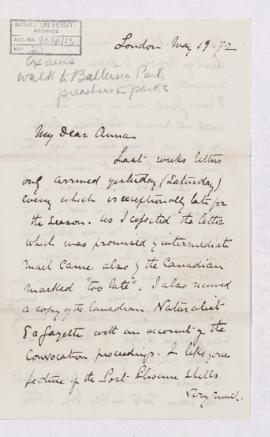 McGILL UNIVERSITY
ARCHIVES
ACC. NO.
REF.
Exams
walk to Battersea Park
preachers in parks
London May 19 - 72
My Dear Anna
Last weeks letters
only arrived yesterday (Saturday)
eveng which is exceptionally late for
the season. As I expected the letter
which was promised by intermediate
mail came also by the Canadian
marked "too late". I also received
a copy of the Canadian Naturalist
& a gazette with an account of the
Convocation proceedings. I like your
picture of the Post-Pliocene shells
very much.